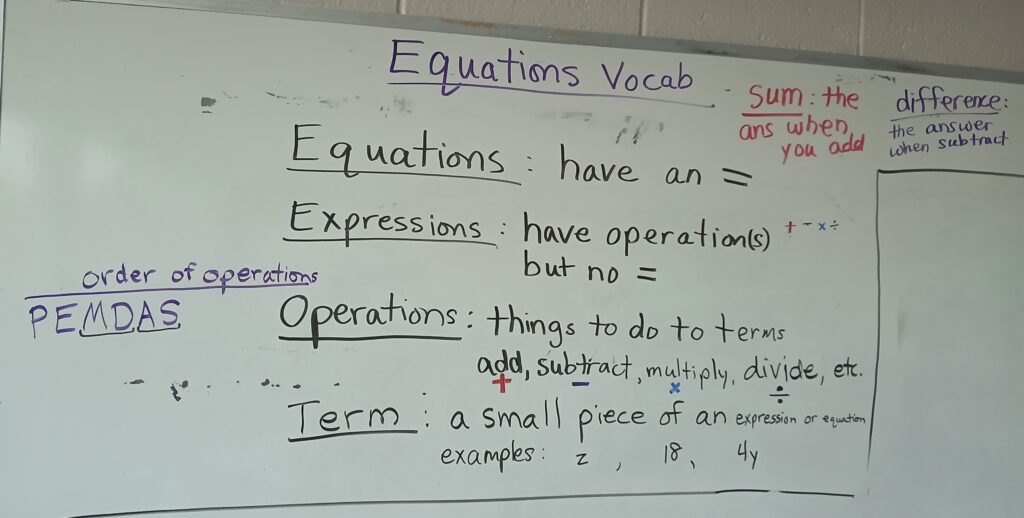 Equations Vocab
sum: the
ans when
you add
difference:
the answer
when subtract
Equations: have an =
Expressions: have operation(s) + - x ÷
but no =
order of operations
PEMDAS
Operations: things to do to terms
add, subtract, multiply, divide, etc.
+ - x ÷
Term: a small piece of an expression or equation
examples: z, 18, 4y